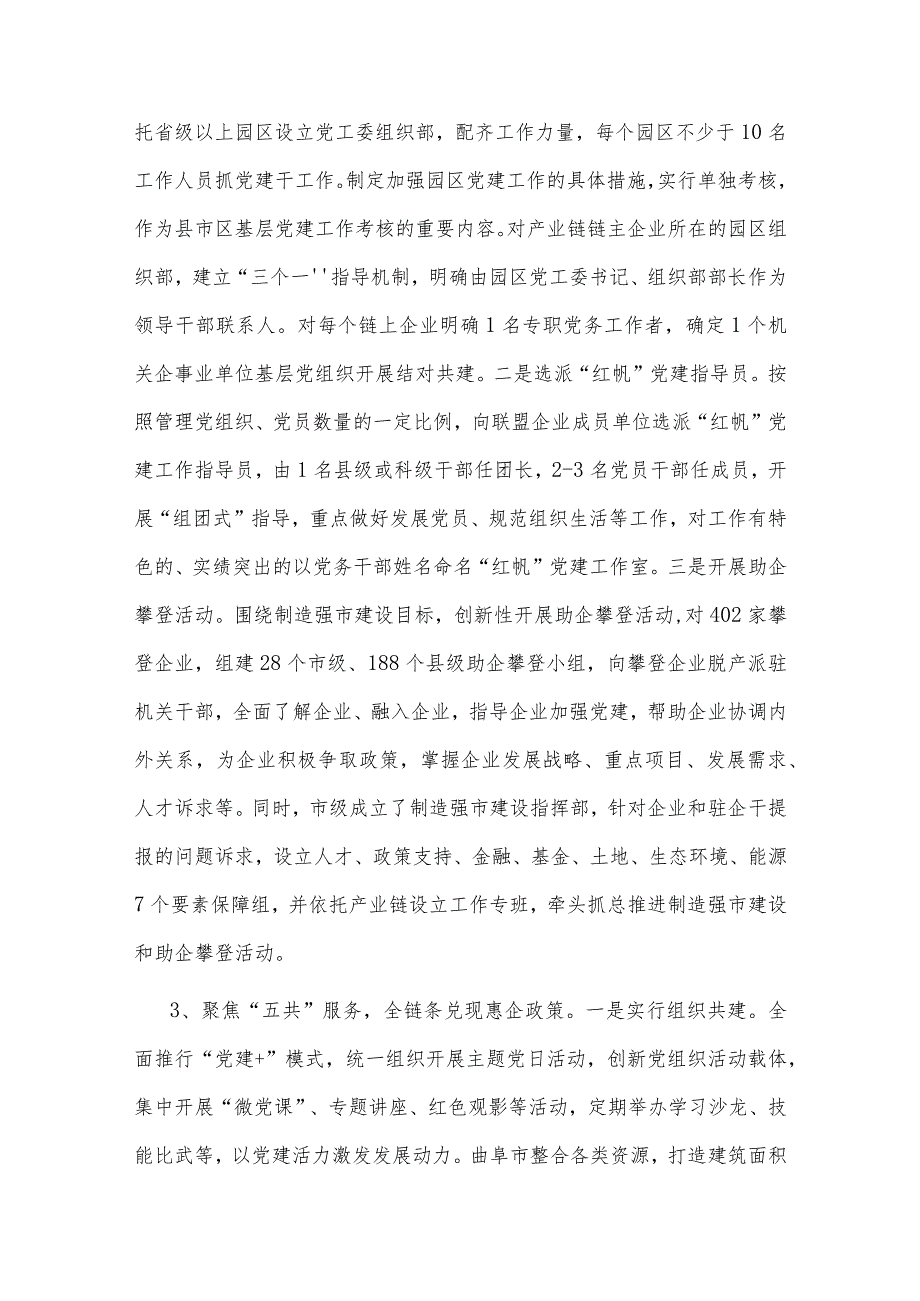 托省级以上园区设立党工委组织部，配齐工作力量，每个园区不少于 10 名
工作人员抓党建干工作。制定加强园区党建工作的具体措施,实行单独考核，
作为县市区基层党建工作考核的重要内容。对产业链链主企业所在的园区组
织部，建立“三个一''指导机制，明确由园区党工委书记、组织部部长作为
领导干部联系人。对每个链上企业明确 1 名专职党务工作者，确定 1 个机
关企事业单位基层党组织开展结对共建。二是选派“红帆”党建指导员。按
照管理党组织、党员数量的一定比例，向联盟企业成员单位选派“红帆”党
建工作指导员，由 1 名县级或科级干部任团长，2-3 名党员干部任成员，开
展“组团式”指导，重点做好发展党员、规范组织生活等工作，对工作有特
色的、实绩突出的以党务干部姓名命名“红帆”党建工作室。三是开展助企
攀登活动。围绕制造强市建设目标，创新性开展助企攀登活动,对 402 家攀
登企业，组建 28 个市级、188 个县级助企攀登小组，向攀登企业脱产派驻
机关干部，全面了解企业、融入企业，指导企业加强党建，帮助企业协调内
外关系，为企业积极争取政策，掌握企业发展战略、重点项目、发展需求、
人才诉求等。同时，市级成立了制造强市建设指挥部，针对企业和驻企干提
报的问题诉求，设立人才、政策支持、金融、基金、土地、生态环境、能源
7 个要素保障组，并依托产业链设立工作专班，牵头抓总推进制造强市建设
和助企攀登活动。
3、聚焦“五共”服务，全链条兑现惠企政策。一是实行组织共建。全
面推行“党建+”模式，统一组织开展主题党日活动，创新党组织活动载体，
集中开展“微党课”、专题讲座、红色观影等活动，定期举办学习沙龙、技
能比武等，以党建活力激发发展动力。曲阜市整合各类资源，打造建筑面积